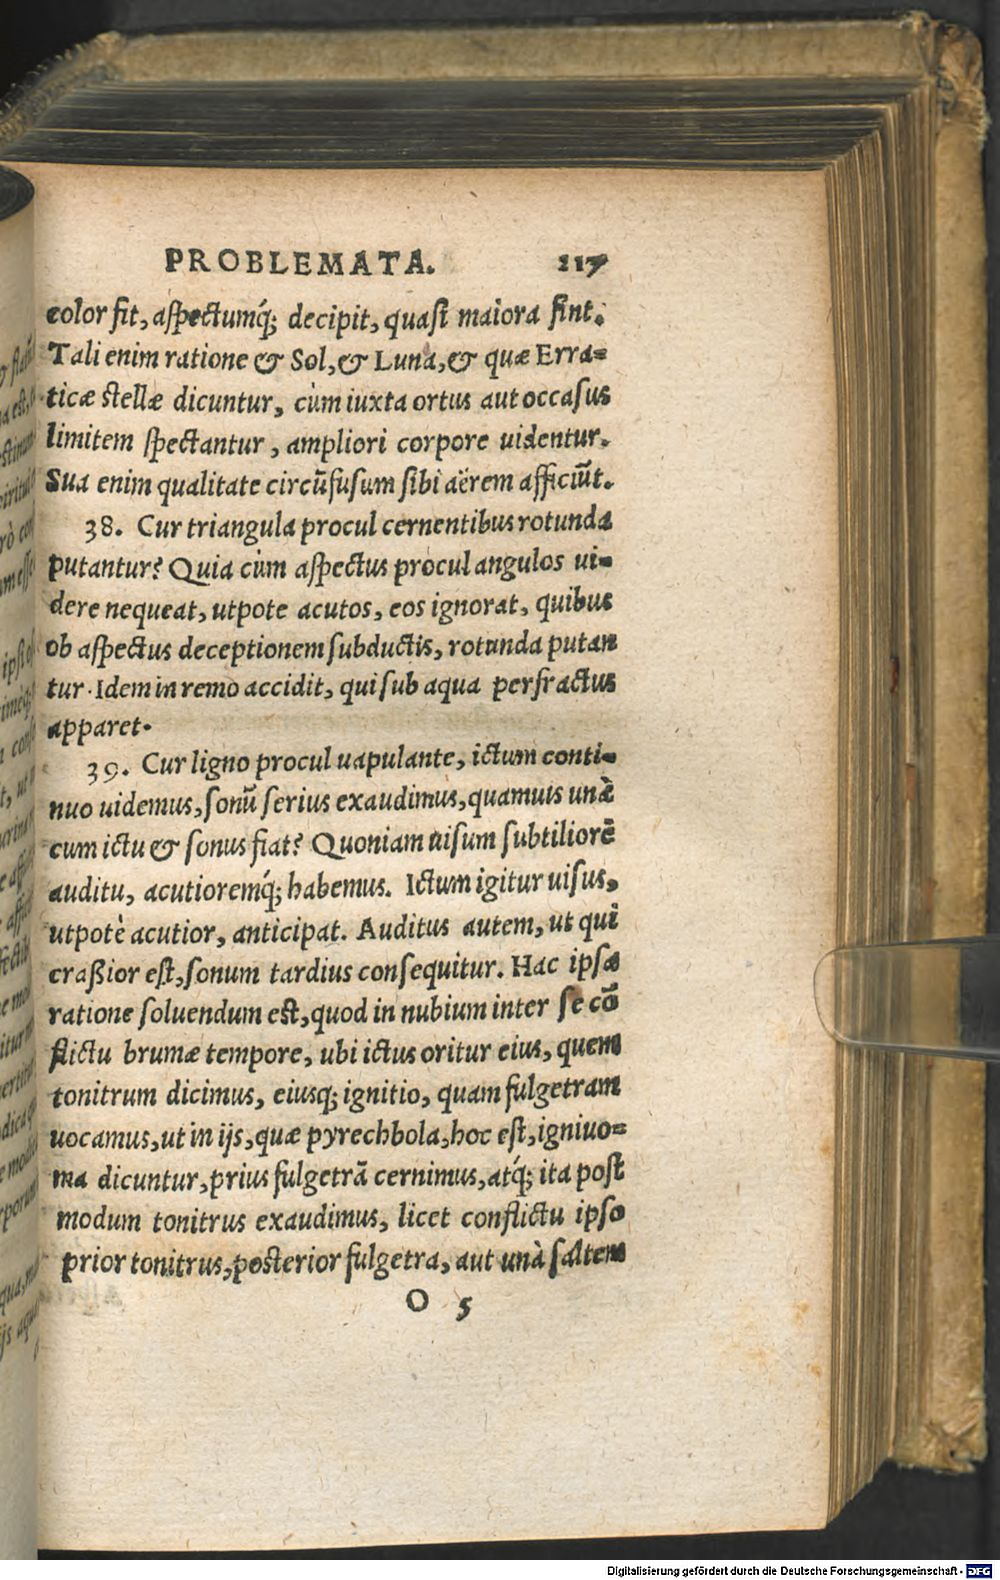 PROBLEMATA. 217
color fit, aſpectumq́; decipit, quaſi maiora ſint.
Tali enim ratione & Sol, & Luna, & quæ Erra=
ticæ stellæ dicuntur, cùm iuxta ortus aut occaſus
limitem ſpectantur, ampliori corpore uidentur.
Sua enim qualitate circũfuſum ſibi aërem afficiũt.
38. Cur triangula procul cernentibus rotunda
putantur? Quia cùm aſpectus procul angulos ui=
dere nequeat, utpote acutos, eos ignorat, quibus
ob aſpectus deceptionem ſubductis, rotunda putan
tur. Idem in remo accidit, qui ſub aqua perfractus
apparet.
39. Cur ligno procul uapulante, ictum conti=
nuo uidemus, ſonũ ſerius exaudimus, quamuis unà
cum ictu & ſonus fiat? Quoniam uiſum ſubtiliorẽ
auditu, acutioremq́; habemus. Ictum igitur uiſus,
utpotè acutior, anticipat. Auditus autem, ut qui
craßior eſt, ſonum tardius conſequitur. Hac ipſa
ratione ſoluendum eſt, quod in nubium inter ſe cõ
flictu brumæ tempore, ubi ictus oritur eius, quem
tonitrum dicimus, eiusq; ignitio, quam fulgetram
uocamus, ut in ijs, quæ pyrechbola, hoc eſt, igniuo=
ma dicuntur, prius fulgetrã cernimus, atq́; ita poſt
modum tonitrus exaudimus, licet conflictu ipſo
prior tonitrus, posterior fulgetra, aut unà ſaltem
O 5
Digitalisierung gefördert durch die Deutsche Forschungsgemeinschaft - DFG